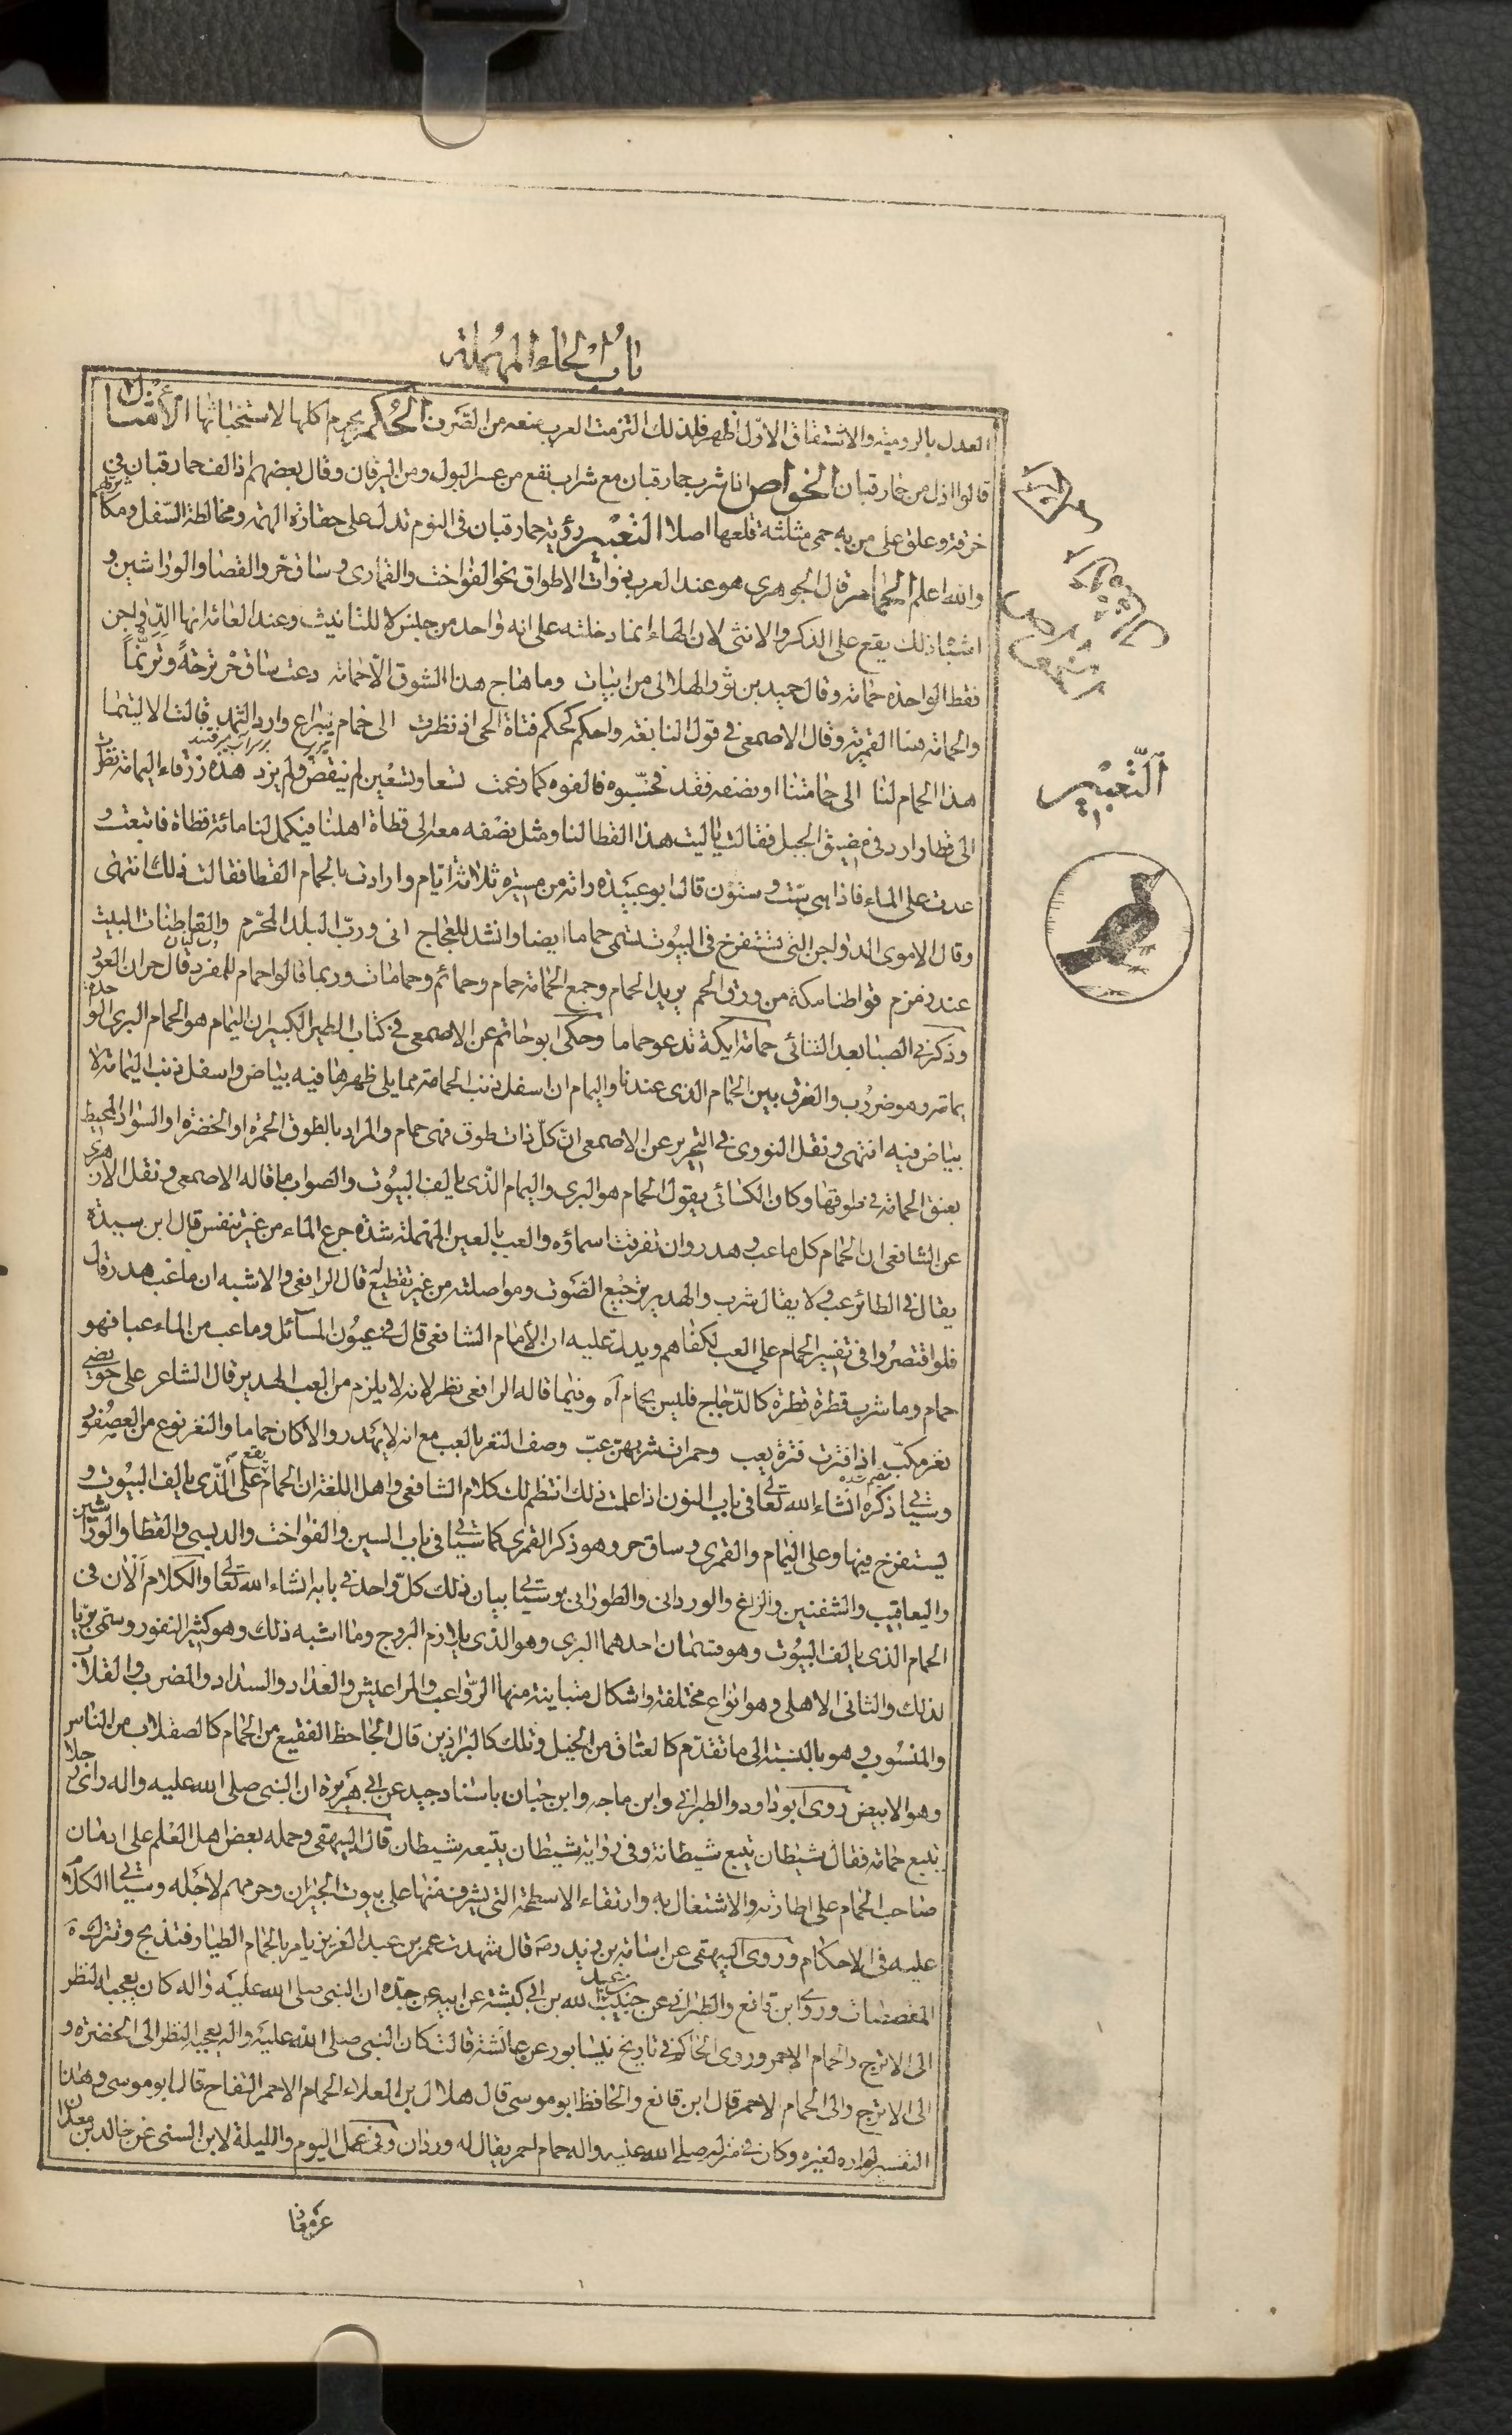 باب الحاء المهملة
العدل بالرومية والاشتقاق الاول اظهر فلذلك التزمت العرب منعه من الصرف الحكم يحرم اكلها لاستخباثها الأمثال
قالوا اذل من حمار قبان الخواص اذا شرب حمار قبان مع شراب نفع من عسر البول ومن اليرقان وقال بعضهم اذا لف حمار قبان في
خرقة وعلق على من به حمى مثلثة قلعها اصلا التعبير رؤية حمار قبان في النوم تدل على حقارة الهمة ومخالطة السفل ومكاثرتهم
والله اعلم الحمام قال الجوهري هو عند العرب ذوات الاطواق نحو الفواخت والقماري وساق حر والقطا والوراشين و
اشباه ذلك يقع على الذكر والانثى لان الهاء انما دخلته على انه واحد من جنس لا للتانيث وعند العامة انها الدواجن
فقط الواحدة حمامة وقال حميد بن ثور الهلالي من ابيات وما هاج هذا الشوق الا حمامة دعت ساق حر ترحة وترنما
والحمامة هنا القمرية وقال الاصمعي في قول النابغة واحكم كحكم فتاة الحي اذ نظرت الى حمام سراع وارد الثمد قالت الا ليتما
هذا الحمام لنا الى حمامتنا او نصفه فقد فحسبوه فالفوه كما زعمت تسعا وتسعين لم ينقص ولم يزد هذه زرقاء اليمامة نظرت
الى قطا وارد في مضيق الجبل فقالت يا ليت هذا القطا لنا ومثل نصفه معه الى قطاة اهلنا فيكمل لنا مائة قطاة فاتبعت و
عدت على الماء فاذا هي ست وستون قال ابو عبيدة راته من مسيرة ثلاثة ايام وارادت بالحمام القطا فقالت ذلك انتهى
وقال الاموي الدواجن التي تستفرخ في البيوت تسمى حماما ايضا وانشد للعجاج اني ورب البلد المحرم والقاطنات البيت
عند زمزم قواطنا مكة من ورق الحم يريد الحمام وجمع الحمامة حمام وحمائم وحمامات وربما قالوا حمام للمفرد قال جران العود
وذكرني الصبا بعد التنائي حمامة ايكة تدعو حماما وحكى ابو حاتم عن الاصمعي في كتاب الطير الكبير ان اليمام هو الحمام البري الواحدة
يمامة وهو ضروب والفرق بين الحمام الذي عندنا واليمام ان اسفل ذنب الحمامة مما يلي ظهرها فيه بياض واسفل ذنب اليمامة لا
بياض فيه انتهى ونقل النووي في التحرير عن الاصمعي ان كل ذات طوق فهي حمام والمراد بالطوق الحمرة او الخضرة او السواد المحيط
بعنق الحمامة في طوقها وكان الكسائي يقول الحمام هو البري واليمام الذي يالف البيوت والصواب ما قاله الاصمعي ونقل الازهري
عن الشافعي ان الحمام كل ما عب وهدر وان تفرقت اسماؤه والعب بالعين المهملة شدة جرع الماء من غير تنفس قال ابن سيدة
يقال في الطائر عب ولا يقال شرب والهدير ترجيع الصوت ومواصلته من غير تقطيع له قال الرافعي والاشبه ان ما عب هدر قال
فلو اقتصروا في تفسير الحمام على العب لكفاهم ويدل عليه ان الامام الشافعي قال في عيون المسآئل وما عب من الماء عبا فهو
حمام وما شرب قطرة قطرة كالدجاج فليس بحمام اه وفيما قاله الرافعي نظر لانه لا يلزم من العب الهدير قال الشاعر على حويضي
نغر مكب اذا فترت فترة يعب وحمرات شربهن عب وصف النغر بالعب مع انه لا يهدر والا كان حماما والنغر نوع من العصفور
وسياتي ذكره انشاء الله تعالى في باب النون اذا علمت ذلك انتظم لك كلام الشافعي واهل اللغة ان الحمام يقع على الذي يالف البيوت و
يستفرخ فيها وعلى اليمام والقمري وساق حر وهو ذكر القمري كما سياتي في باب السين والفواخت والدبسي والقطا والوراشين
واليعاقيب والشفنين والزاغ والورداني والطوراني وسياتي بيان ذلك كل واحد في بابه انشاء الله تعالى والكلام الآن في
الحمام الذي يالف البيوت وهو قسمان احدهما البري وهو الذي يلازم البروج وما اشبه ذلك وهو كثير النفور وسمي بريا
لذلك والثاني الاهلي وهو انواع مختلفة واشكال متباينة منها الرواعب والمراعيش والعداد والسداد والمضرب والقلاب
والمنسوب وهو بالنسبة الى ما تقدم كالعتاق من الخيل وتلك كالبراذين قال الجاحظ الفقيع من الحمام كالصقلاب من الناس
وهو الابيض روى ابو داود والطبراني وابن ماجه وابن حبان باسناد جيد عن ابي هريرة ان النبي صلى الله عليه واله راى رجلا
يتبع حمامة فقال شيطان يتبع شيطانة وفي رواية شيطان يتبعه شيطان قال البيهقي وحمله بعض اهل العلم على ادمان
صاحب الحمام على اطارته والاشتغال به وارتقاء الاسطحة التي يشرف منها على بيوت الجيران وحرمهم لاجله وسياتي الكلام
عليه في الاحكام وروى البيهقي عن اسامة بن زيد رضه قال شهدت عمر بن عبد العزيز يامر بالحمام الطيار فتذبح وتترك
المقصصات وروى ابن قانع والطبراني عن حبيب بن عبد الله بن ابي كبشة عن ابيه عن جده ان النبي صلى الله عليه واله كان يعجبه النظر
الى الاترج والحمام الاحمر وروى الحاكم في تاريخ نيسابور عن عائشة قالت كان النبي صلى الله عليه واله يعجبه النظر الى الخضرة و
الى الاترج والى الحمام الاحمر قال ابن قانع والحافظ ابو موسى قال هلال بن العلاء الحمام الاحمر التفاح قال ابو موسى وهذا
التفسير لم اره لغيره وكان في منزله صلى الله عليه واله حمام احمر يقال له وردان وفي عمل اليوم والليلة لابن السني عن خالد بن معدان
التعبير